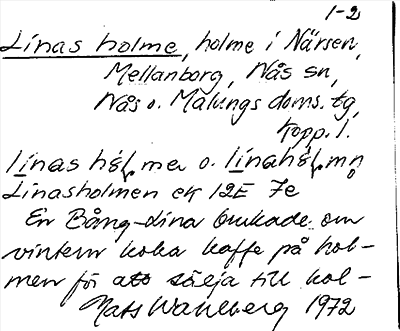 1-2
Linas holme, holme i Närsen,
Mellanborg, Nås sn,
Nås o. Malungs doms. tg,
Kopp. l.
Linasholmen ek 12E 7e
En Bång-Lina brukade om
vintern koka kaffe på hol-
men för att sälja till kol-
Mats Wahlberg 1972